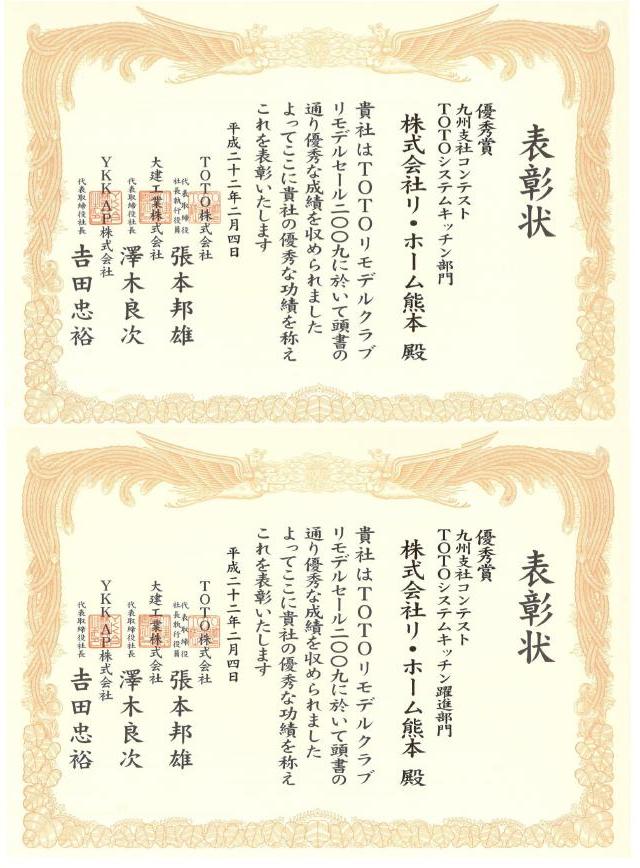 表彰状
優秀賞
九州支社コンテスト
TOTOシステムキッチン部門
株式会社リ・ホーム熊本 殿
貴社はTOTOリモデルクラブ
リモデルセール二〇〇九に於いて頭書の
通り優秀な成績を収められました
よってここに貴社の優秀な功績を称え
これを表彰いたします
平成二十二年二月四日
TOTO株式会社
代表取締役
社長執行役員
張本邦雄
大建工業株式会社
代表取締役社長
澤木良次
YKK AP株式会社
代表取締役社長
吉田忠裕
表彰状
優秀賞
九州支社コンテスト
TOTOシステムキッチン躍進部門
株式会社リ・ホーム熊本 殿
貴社はTOTOリモデルクラブ
リモデルセール二〇〇九に於いて頭書の
通り優秀な成績を収められました
よってここに貴社の優秀な功績を称え
これを表彰いたします
平成二十二年二月四日
TOTO株式会社
代表取締役
社長執行役員
張本邦雄
大建工業株式会社
代表取締役社長
澤木良次
YKK AP株式会社
代表取締役社長
吉田忠裕